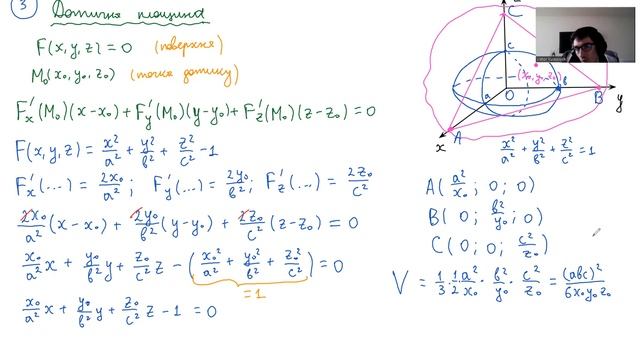 3 Дотична площина
F(x, y, z) = 0 (поверхня)
M₀(x₀, y₀, z₀) (точка дотику)
Fₓ'(M₀)(x−x₀) + F_y'(M₀)(y−y₀) + F_z'(M₀)(z−z₀) = 0
F(x, y, z) = x²/a² + y²/b² + z²/c² − 1
Fₓ'(...) = 2x₀/a² ; F_y'(...) = 2y₀/b² ; F_z'(...) = 2z₀/c²
2x₀/a² (x−x₀) + 2y₀/b² (y−y₀) + 2z₀/c² (z−z₀) = 0
x₀/a² x + y₀/b² y + z₀/c² z − (x₀²/a² + y₀²/b² + z₀²/c²) = 0
=1
x₀/a² x + y₀/b² y + z₀/c² z − 1 = 0
C
c
(x₀, y₀, z₀)
a
O
b
B
y
A
x
x²/a² + y²/b² + z²/c² = 1
A(a²/x₀; 0; 0)
B(0; b²/y₀; 0)
C(0; 0; c²/z₀)
V = 1/3 · 1/2 a²/x₀ · b²/y₀ · c²/z₀ = (abc)²/6x₀y₀z₀